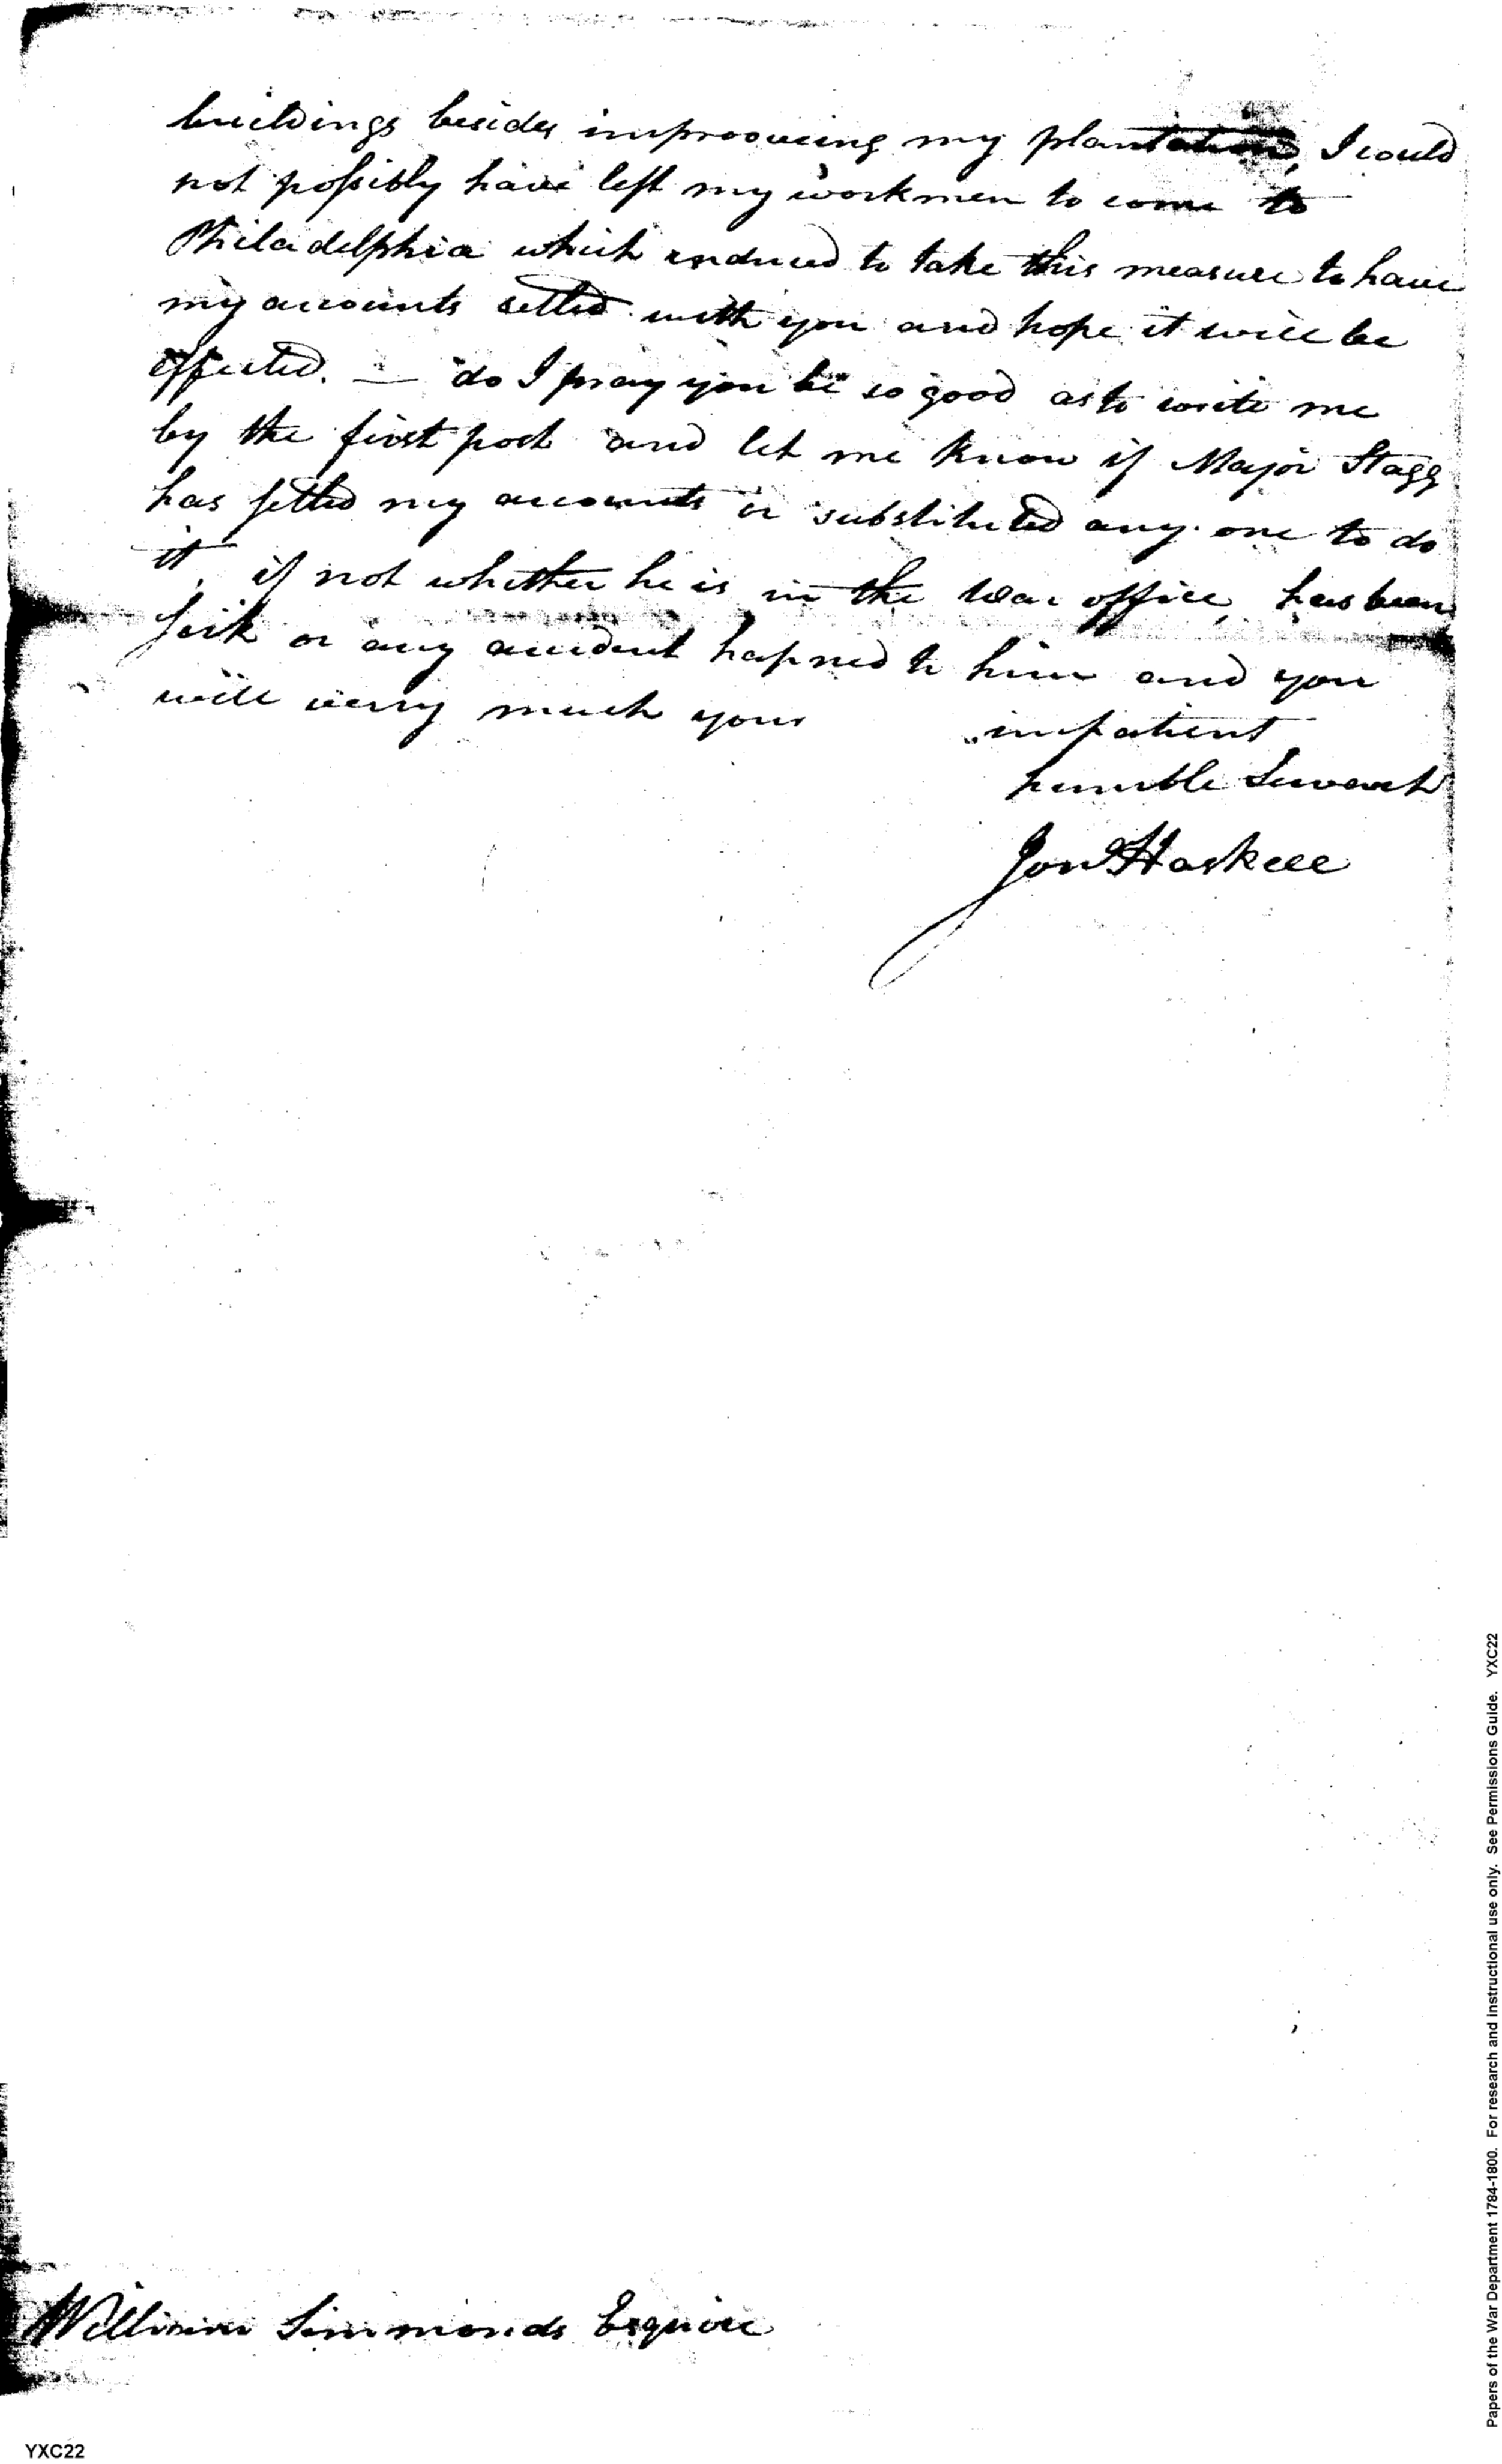 buildings besides improoveing my plantation, I could
not possibly have left my workmen to come to
Philadelphia which enduced to take this measure to have
my accounts settled with you and hope it will be
effected. — do I pray you be so good as to write me
by the first post and let me know if Major Stagg
has settled my accounts or substituted any one to do
it, if not whether he is in the War office, has been
sick or any accident hapned to him and you
will verry much your impatient
humble Servant
Jon Haskell
William Simmonds Esquire
YXC22
Papers of the War Department 1784-1800. For research and instructional use only. See Permissions Guide. YXC22